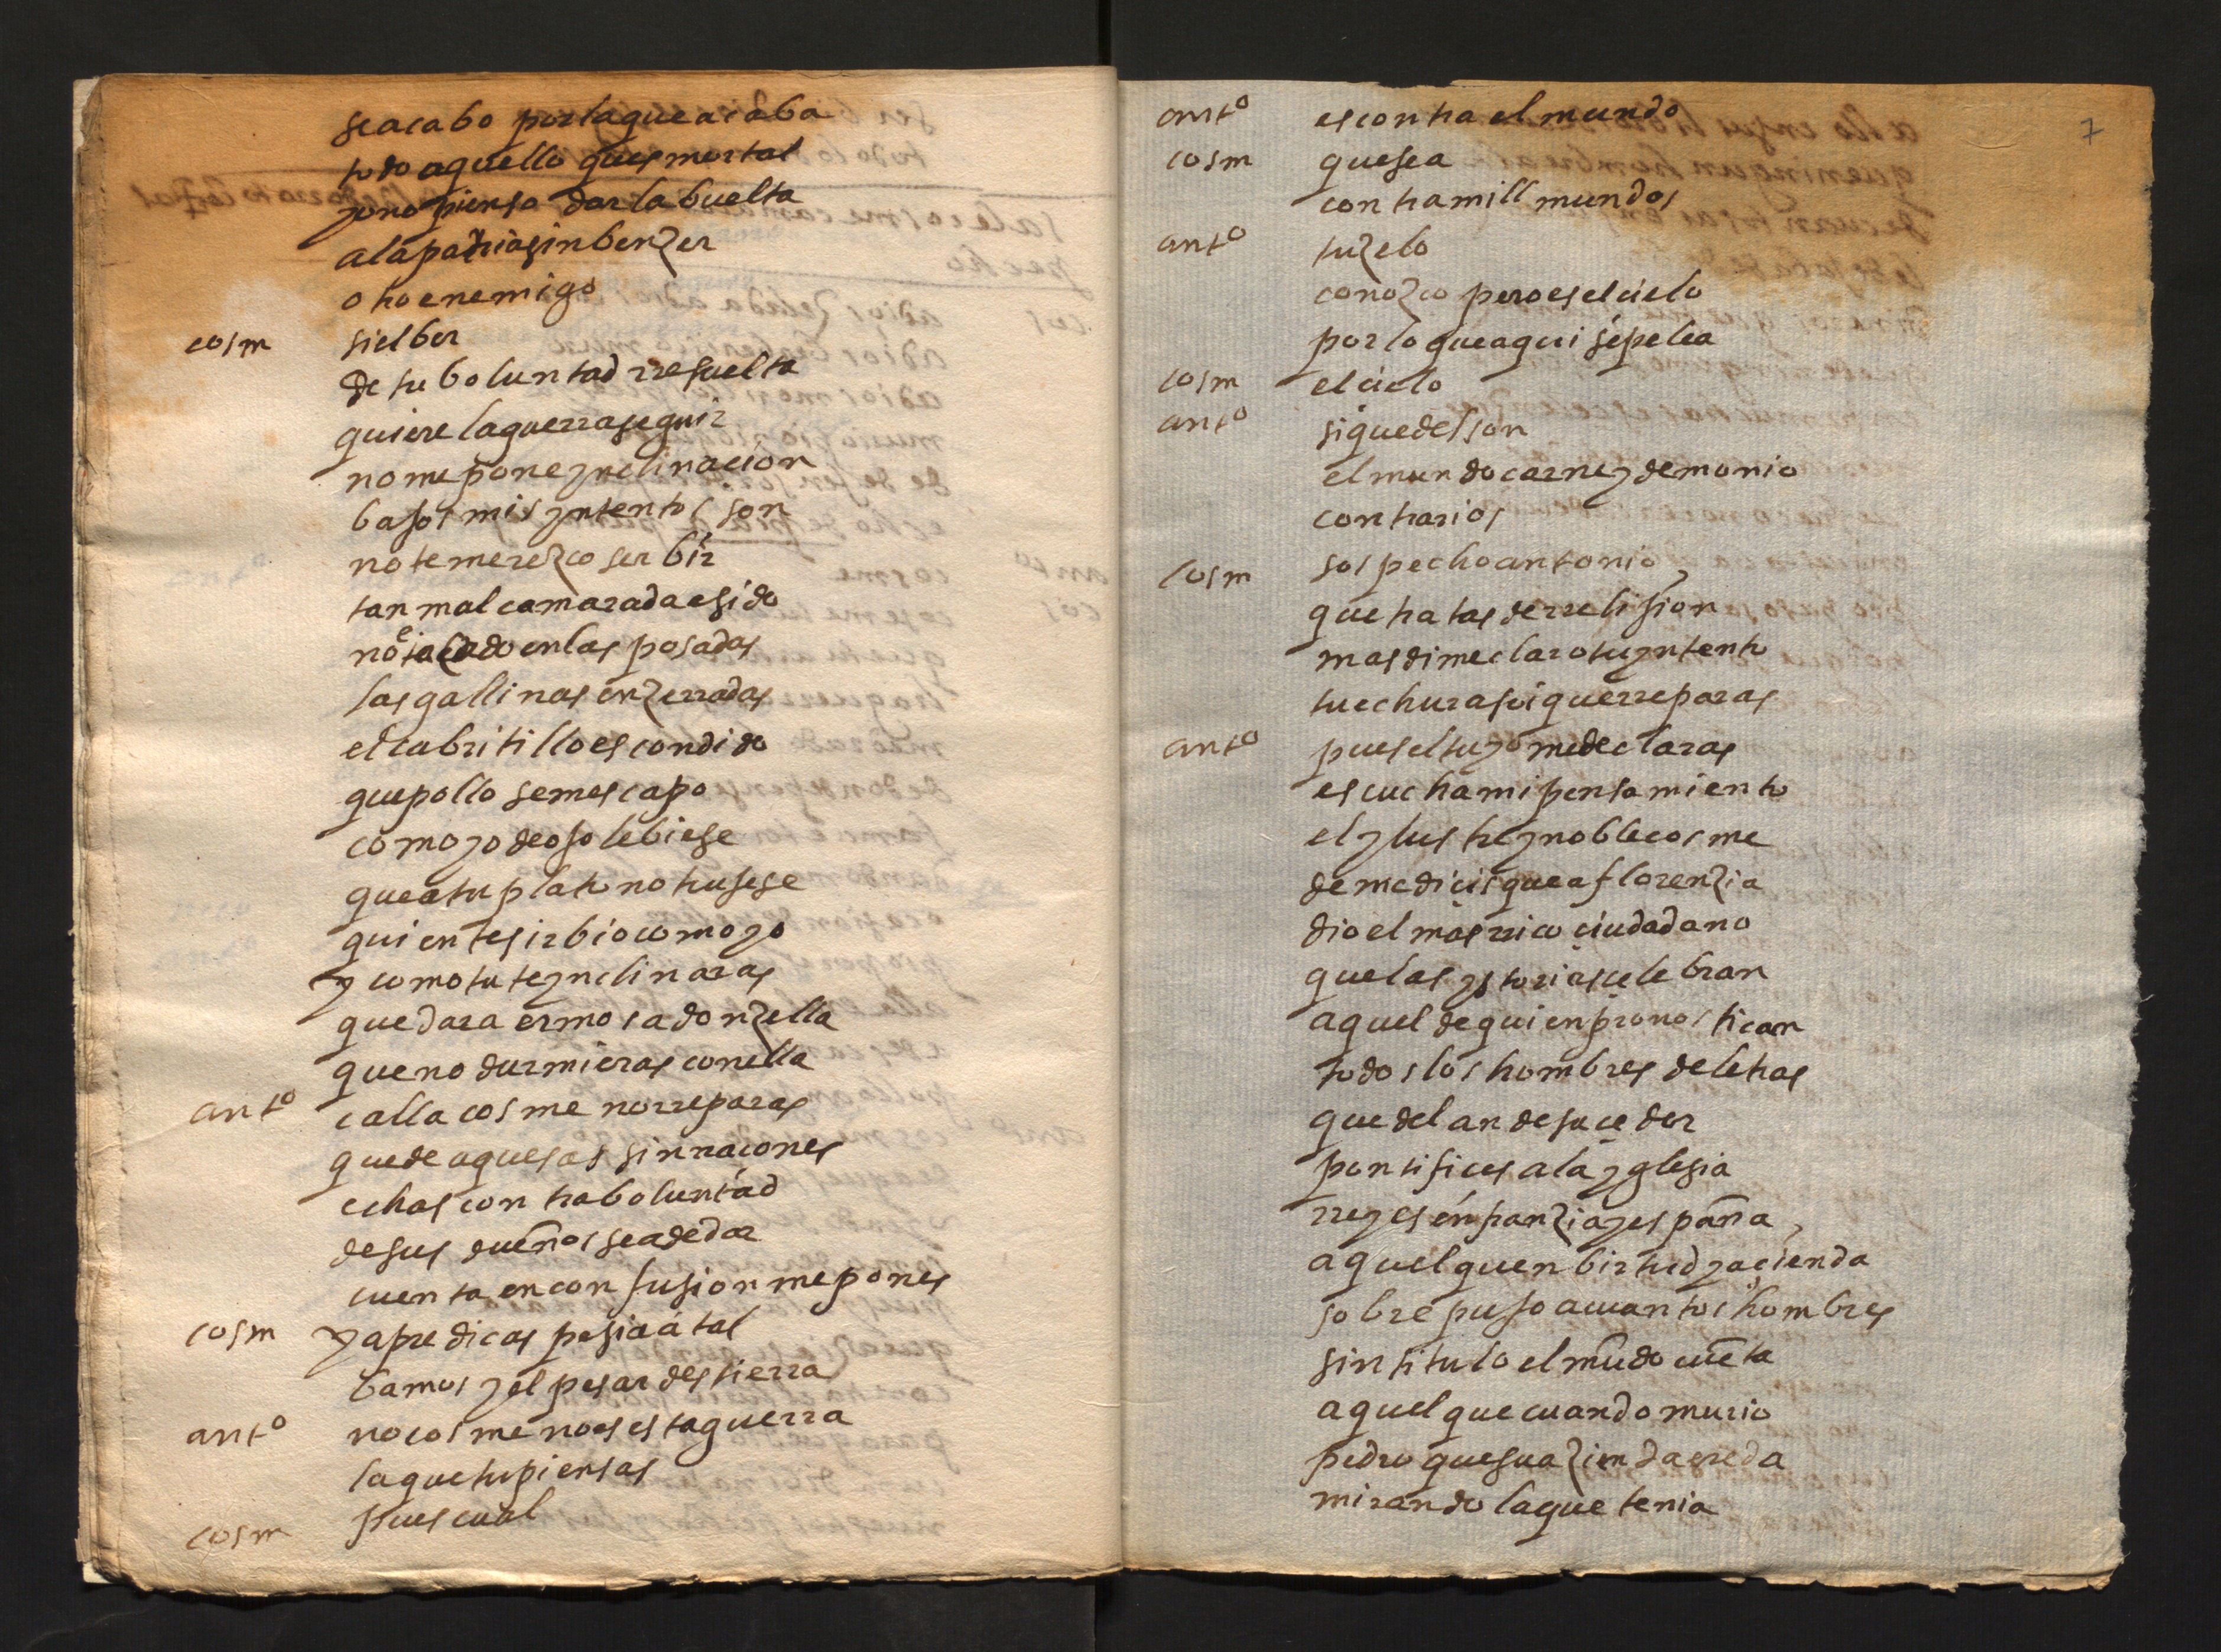 se acabo porla que acaba
todo aquello ques mortal
yo no pienso dar la buelta
a la patria sin benzer
otro enemigo
cosm si el ber
de tu boluntad rresuelta
quiere la guerra seguir
no me pone ynclinacion
bajos mis yntentos son
no te merezco serbir
tan mal camarada e sido
no e tocado en las posadas
las gallinas enzerradas
el cabritillo escondido
que pollo semescapo
como yo de oso le biese
que a tu plato no trujese
quien te sirbio como yo
y como tu te ynclinaras
quedara ermosa donzella
que no durmieras con ella
antº calla cosme no rreparas
que de aquesas sinrraçones
echas contra boluntad
de sus dueños sea de dar
cuenta en confusion me pones
cosm ya predicas pesia a tal
bamos y el pesar destierra
antº no cosme no es esta guerra
la que tu piensas
cosm pues cual
7
antº es contra el mundo
cosm que sea
contra mill mundos
antº tu zelo
conozco pero es el cielo
por lo que aqui se pelea
cosm el cielo
antº si quedel son
el mundo carne y demonio
contrarios
cosm sospecho antonio
que tratas de rrelision
mas dime claro tu yntento
tu echura soi que rreparas
antº pues el tuyo me declaras
escucha mi pensamiento
el ylustre y noble cosme
de medicis que a florenzia
dio el mas rrico ciudadano
que las ystorias celebran
aquel de quien pronostican
todos los hombres de letras
que del an de suceder
pontifices a la yglesia
rreyes en franzia y españa
aquel quen birtud y acienda
sobrepujo a cuantos hombres
sin titulo el mũdo cuẽta
aquel que cuando murio
pedro que su azienda ereda
mirando la que tenia